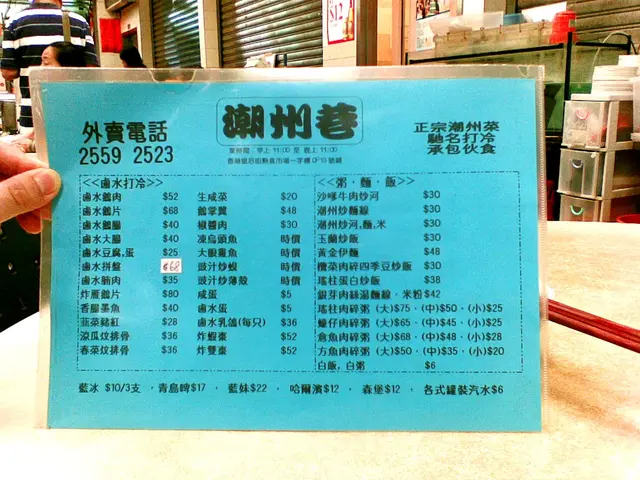 外賣電話
2559 2523
潮州巷
正宗潮州菜
馳名打冷
承包伙食
<<鹵水打冷>>
鹵水鵝肉 $52
鹵水鵝片 $68
鹵水鵝腸 $40
鹵水大腸 $40
鹵水豆腐,蛋 $25
鹵水拼盤 $68
鹵水腩肉 $35
炸雁鵝片 $80
香腸墨魚 $40
韮菜豬紅 $28
涼瓜炆排骨 $36
春菜炆排骨 $36
生咸菜 $20
鵝掌翼 $48
椒醬肉 $30
凍烏頭魚 時價
大眼雞魚 時價
豉汁炒蜆 時價
豉汁炒薄殼 時價
咸蛋 $5
鹵水蛋 $5
鹵水乳鴿(每只) $36
炸蝦棗 $52
炸雙棗 $52
<<粥・麵・飯>>
沙嗲牛肉炒河 $30
潮州炒麵線 $30
潮州炒河,麵,米 $30
玉蘭炒飯 $30
黃金伊麵 $48
欖菜肉碎四季豆炒飯 $30
瑤柱蛋白炒飯 $38
銀芽肉絲湯麵線・米粉 $42
瑤柱肉碎粥 (大)$75・(中)$50・(小)$25
蠔仔肉碎粥 (大)$65・(中)$45・(小)$25
倉魚肉碎粥 (大)$68・(中)$48・(小)$28
方魚肉碎粥 (大)$50・(中)$35・(小)$20
白飯,白粥 $6
藍冰 $10/3支 ・青島啤$17 ・藍妹$22 ・哈爾濱$12 ・森堡$12 ・各式罐裝汽水$6